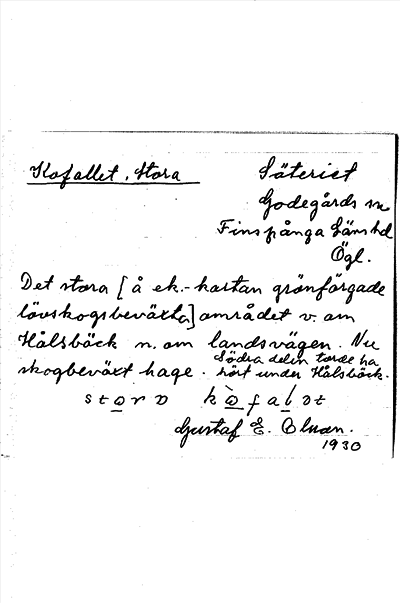 Kofallet, Stora
Säteriet
Godegårds sn
Finspånga läns hd
Ögl.
Det stora [å ek.-kartan grönfärgade
lövskogsbeväxta] området v. om
Hålsbäck n. om landsvägen. Nu
skogbeväxt hage. Södra delen torde ha
hört under Hålsbäck.
Gustaf E.
1930